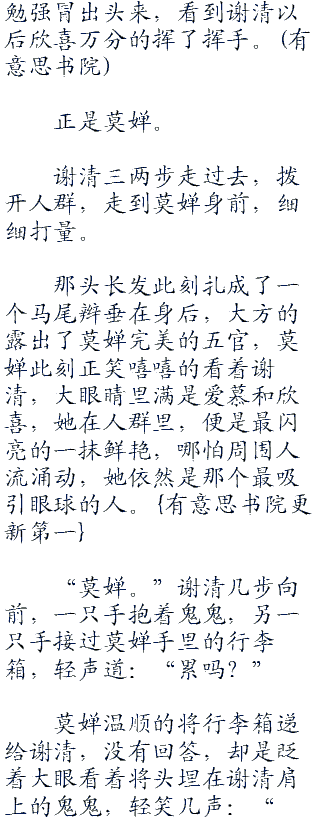 勉强冒出头来，看到谢清以
后欣喜万分的挥了挥手。(有
意思书院)
正是莫婵。
谢清三两步走过去，拨
开人群，走到莫婵身前，细
细打量。
那头长发此刻扎成了一
个马尾辫垂在身后，大方的
露出了莫婵完美的五官，莫
婵此刻正笑嘻嘻的看着谢
清，大眼睛里满是爱慕和欣
喜，她在人群里，便是最闪
亮的一抹鲜艳，哪怕周围人
流涌动，她依然是那个最吸
引眼球的人。{有意思书院更
新第一}
“莫婵。”谢清几步向
前，一只手抱着鬼鬼，另一
只手接过莫婵手里的行李
箱，轻声道：“累吗？”
莫婵温顺的将行李箱递
给谢清，没有回答，却是眨
着大眼看着将头埋在谢清肩
上的鬼鬼，轻笑几声：“